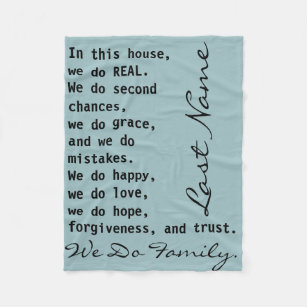 In this house,
we do REAL.
We do second
chances,
we do grace,
and we do
mistakes.
We do happy,
we do love,
we do hope,
forgiveness, and trust.
Last Name
We Do Family.